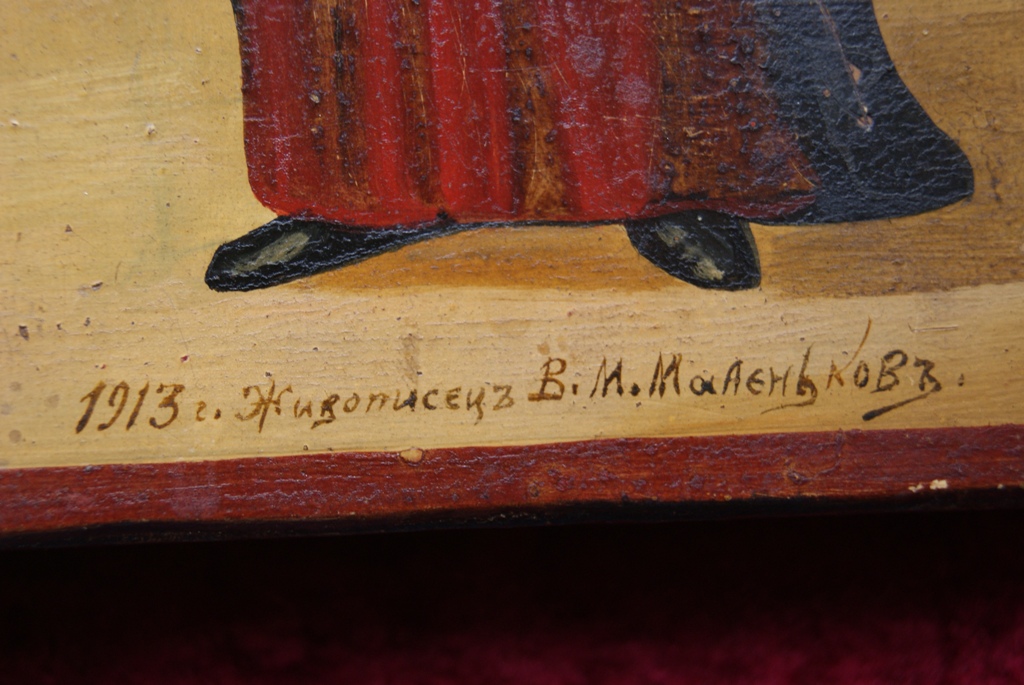 1913 г. Живописецъ В. М. Маленьковъ.